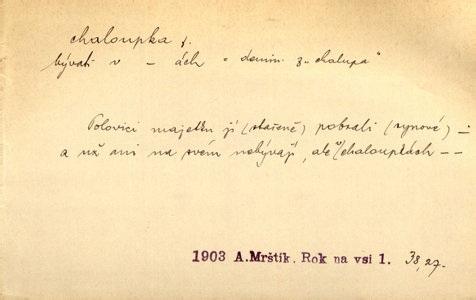 chaloupka f.
bývati v – ách = demin. z „chalupa"
Polovici majetku jí (stařeně) pobrali (synové) –
a už ani na svém nebývají, ale v chaloupkách – –
1903 A. Mrštík. Rok na vsi 1. 38, 27.